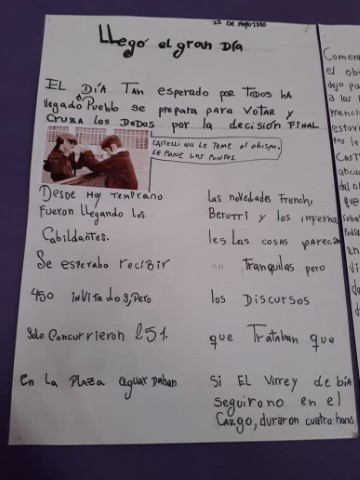 22 DE Mayo 1810
LLEGÓ el gran DÍA
EL DÍA Tan esperado por Todos ha
llegado Pueblo se prepara para VOTAR y
CRUZA LOS DEDOS por la decisión FINAL
CASTELLI NO LE TEME AL Obispo.
LE PONE LOS PUNTOS
DesDe Muy Temprano
Fueron llegando los
Cabildantes.
Se esperaba recibir
450 invitados, pero
Solo concurrieron 251.
en La Plaza aguardaban
las novedades French,
Berutti y los inferna
les Las cosas parecía
an Tranquilas pero
los Discursos
que Trataban que
si EL Virrey debía
seguir o no en el
CARGO, duraron cuatro horas
Comen
el obi
dejo pa
a los
estuv
CAST